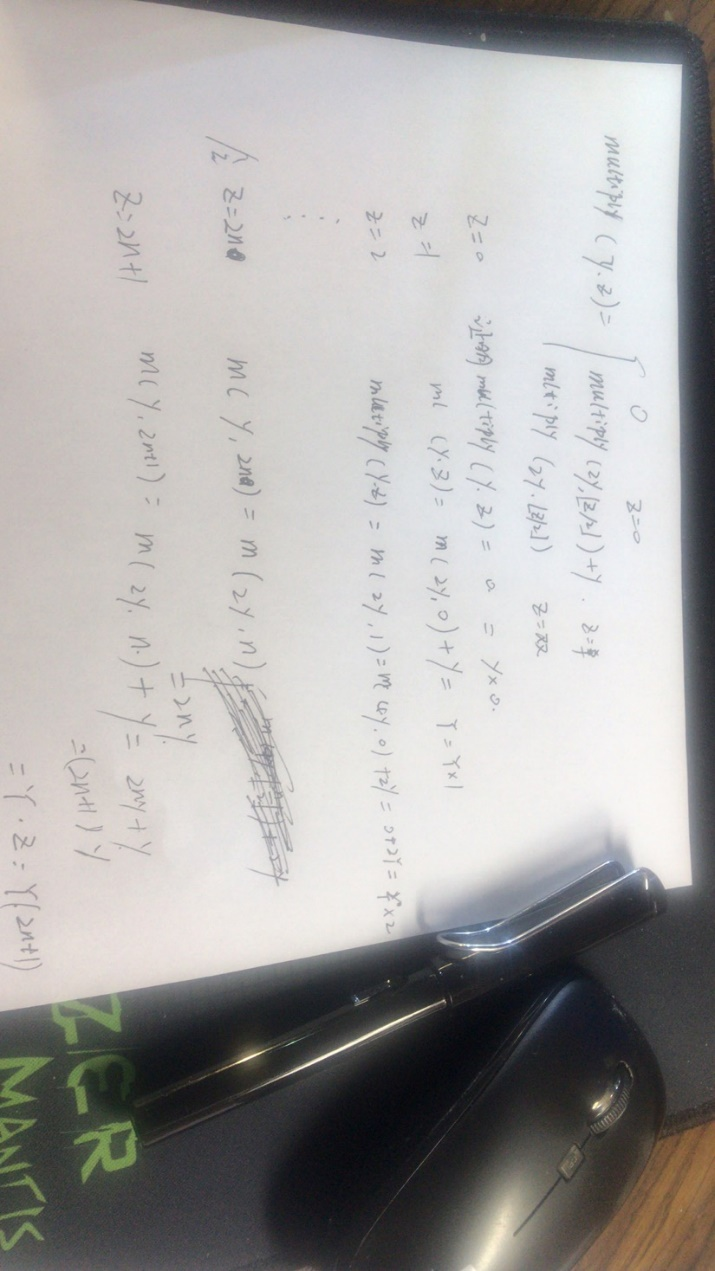 multiply (y.z) = { 0 z=0
multiply (2y,[z/2])+y . z=奇
mltiply (2y.[z/2]) z=
z=0 multiply (y.z) = 0 = y×0.
z=1 m (y.z) = m(2y,0)+y = y=y×1
z=2 multiply (y.z) = m(2y,1)=m(4y.0)+2y = 0+2y = y×2
⋮ ⋮
z=2n m(y,2n) = m(2y,n)
=2ny.
z=2n+1 m(y,2n+1) = m(2y,n.)+y
= 2ny+y
=(2n+1)y
= y.z = y(2n+1)
ZER
MANTIS